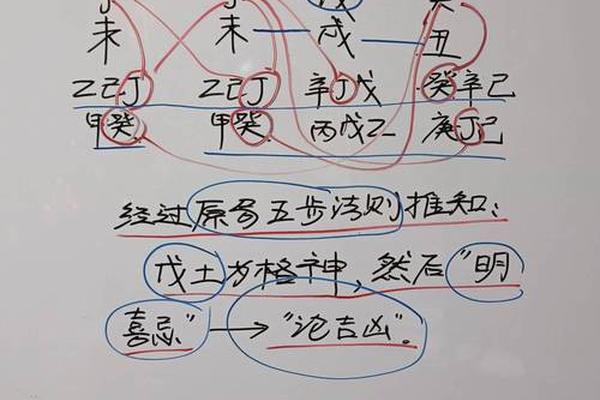 未 未 戌 丑
乙己丁 乙己丁 辛丁戊 癸辛己
甲癸 甲癸 丙戊乙 庚丁己
经过原局五步法则推知:
戊土为格神,然后"明
喜忌"→"论吉凶".